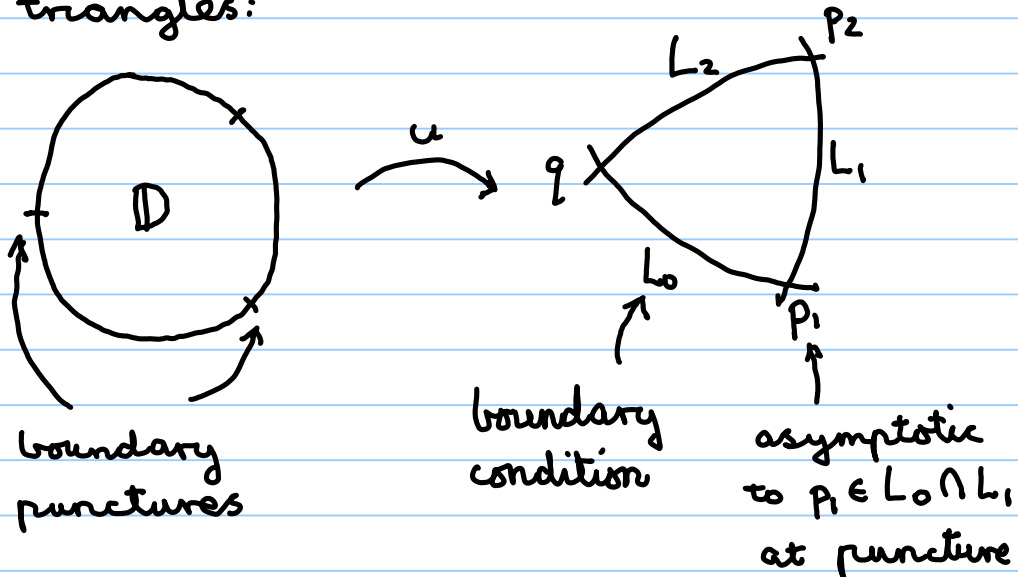 triangles:
𝔻
u
q
L₂
p₂
L₁
L₀
p₁
boundary
punctures
boundary
condition
asymptotic
to p₁ ∈ L₀ ∩ L₁
at puncture